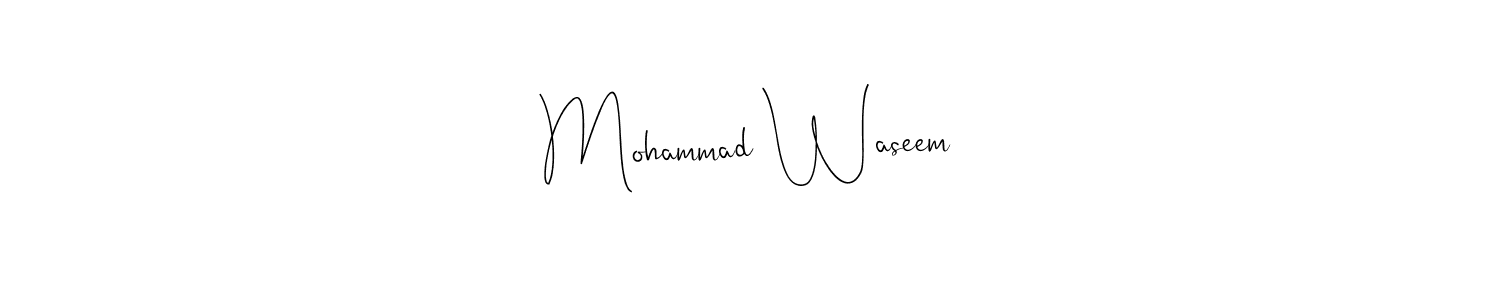 Mohammad Waseem